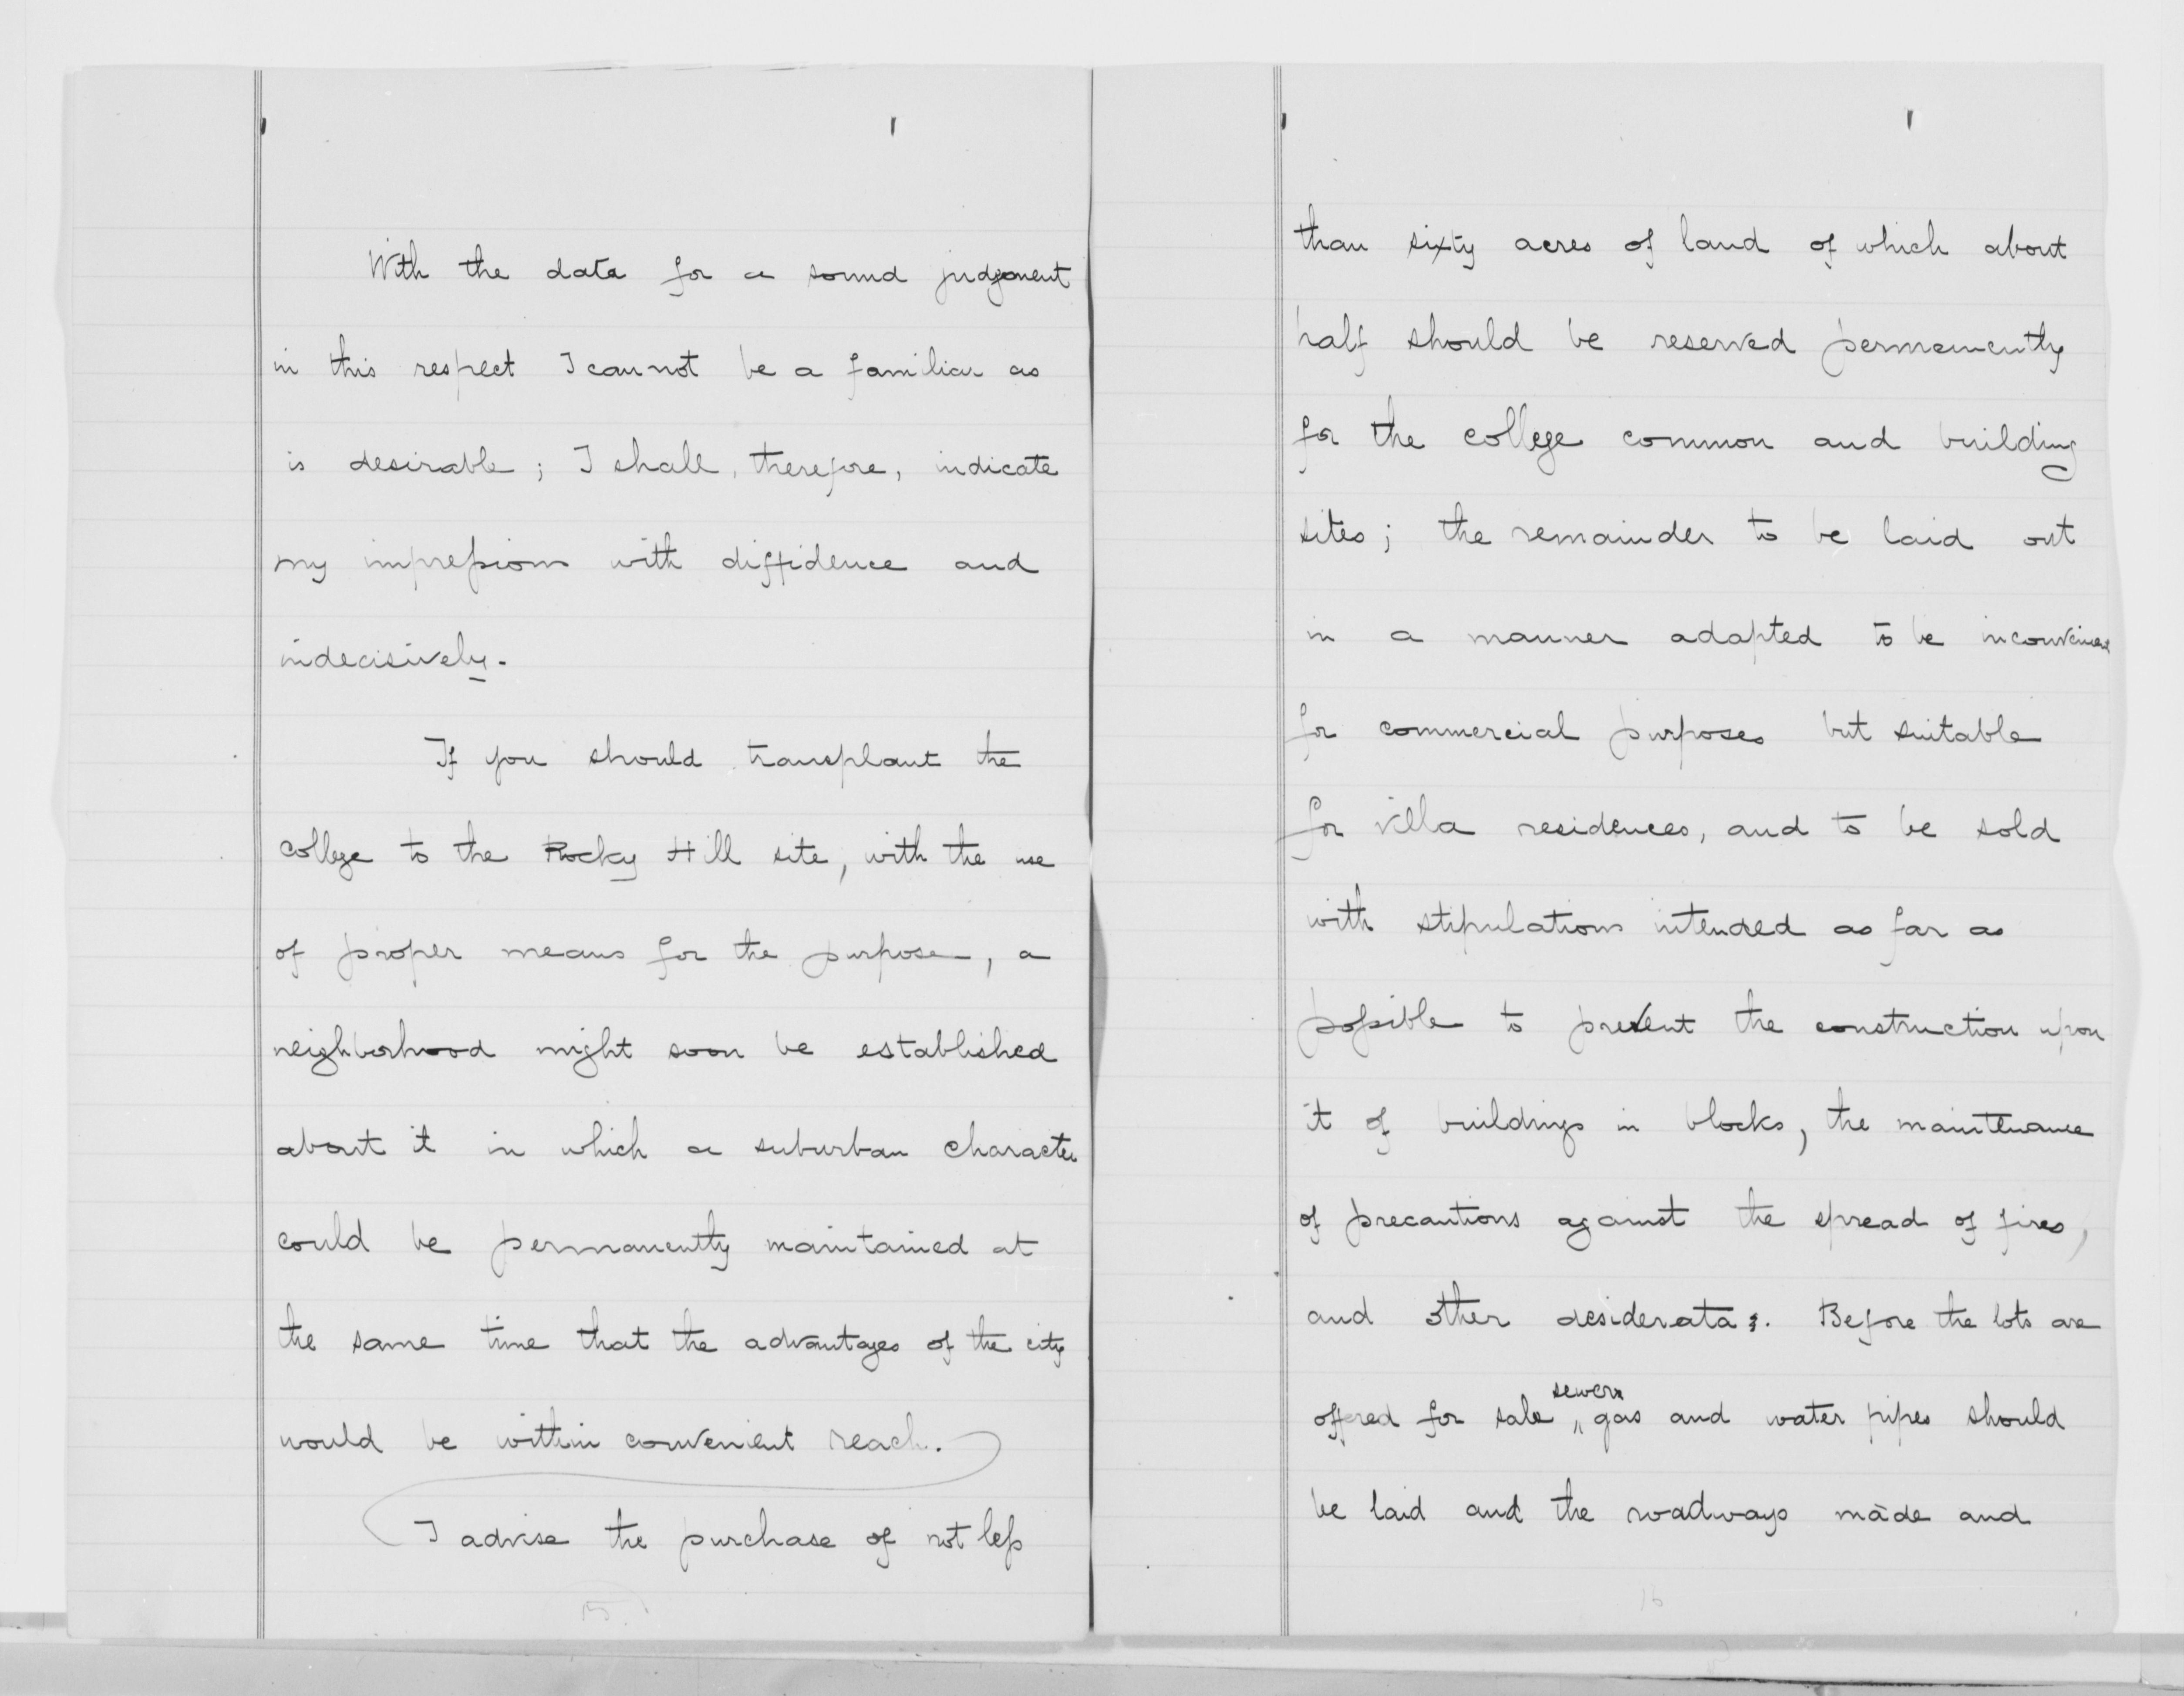 With the data for a sound judgment
in this respect I cannot be a familiar as
is desirable; I shall, therefore, indicate
my impressions with diffidence and
indecisively.
If you should transplant the
college to the Rocky Hill site, with the use
of proper means for the purpose, a
neighborhood might soon be established
about it in which a suburban character
could be permanently maintained at
the same time that the advantages of the city
would be within convenient reach.
I advise the purchase of not less
15
than sixty acres of land of which about
half should be reserved permanently
for the college common and building
sites; the remainder to be laid out
in a manner adapted to be inconvenient
for commercial purposes but suitable
for villa residences, and to be sold
with stipulations intended as far as
possible to prevent the construction upon
it of buildings in blocks, the maintenance
of precautions against the spread of fires,
and other desiderata. Before the lots are
offered for sale sewers gas and water pipes should
be laid and the roadways made and
16